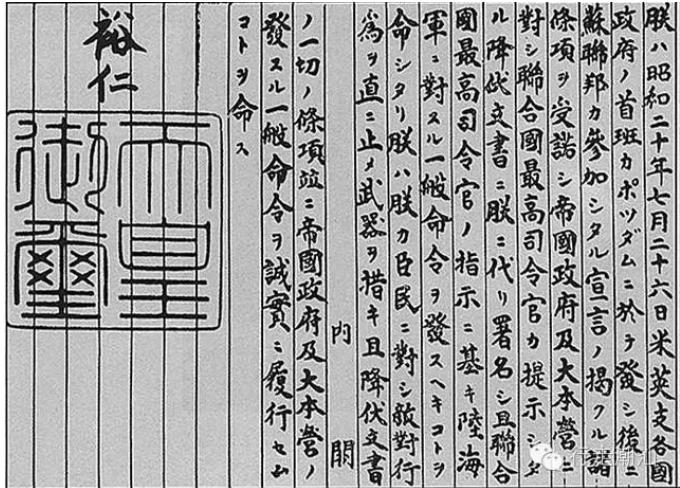 朕ハ昭和二十年七月二十六日米英支各國
政府ノ首班カポツダムニ於テ發シ後ニ
蘇聯邦カ參加シタル宣言ノ揭クル諸
條項ヲ受諾シ帝國政府及大本營ニ
對シ聯合國最高司令官カ提示シタ
ル降伏文書ニ朕ニ代リ署名シ且聯合
國最高司令官ノ指示ニ基キ陸海
軍ニ對スル一般命令ヲ發スヘキコトヲ
命シタリ朕ハ朕カ臣民ニ對シ敵對行
為ヲ直ニ止メ武器ヲ措キ且降伏文書
內閣
ノ一切ノ條項竝ニ帝國政府及大本營ノ
發スル一般命令ヲ誠實ニ履行セム
コトヲ命ス
裕仁
天皇
御璽